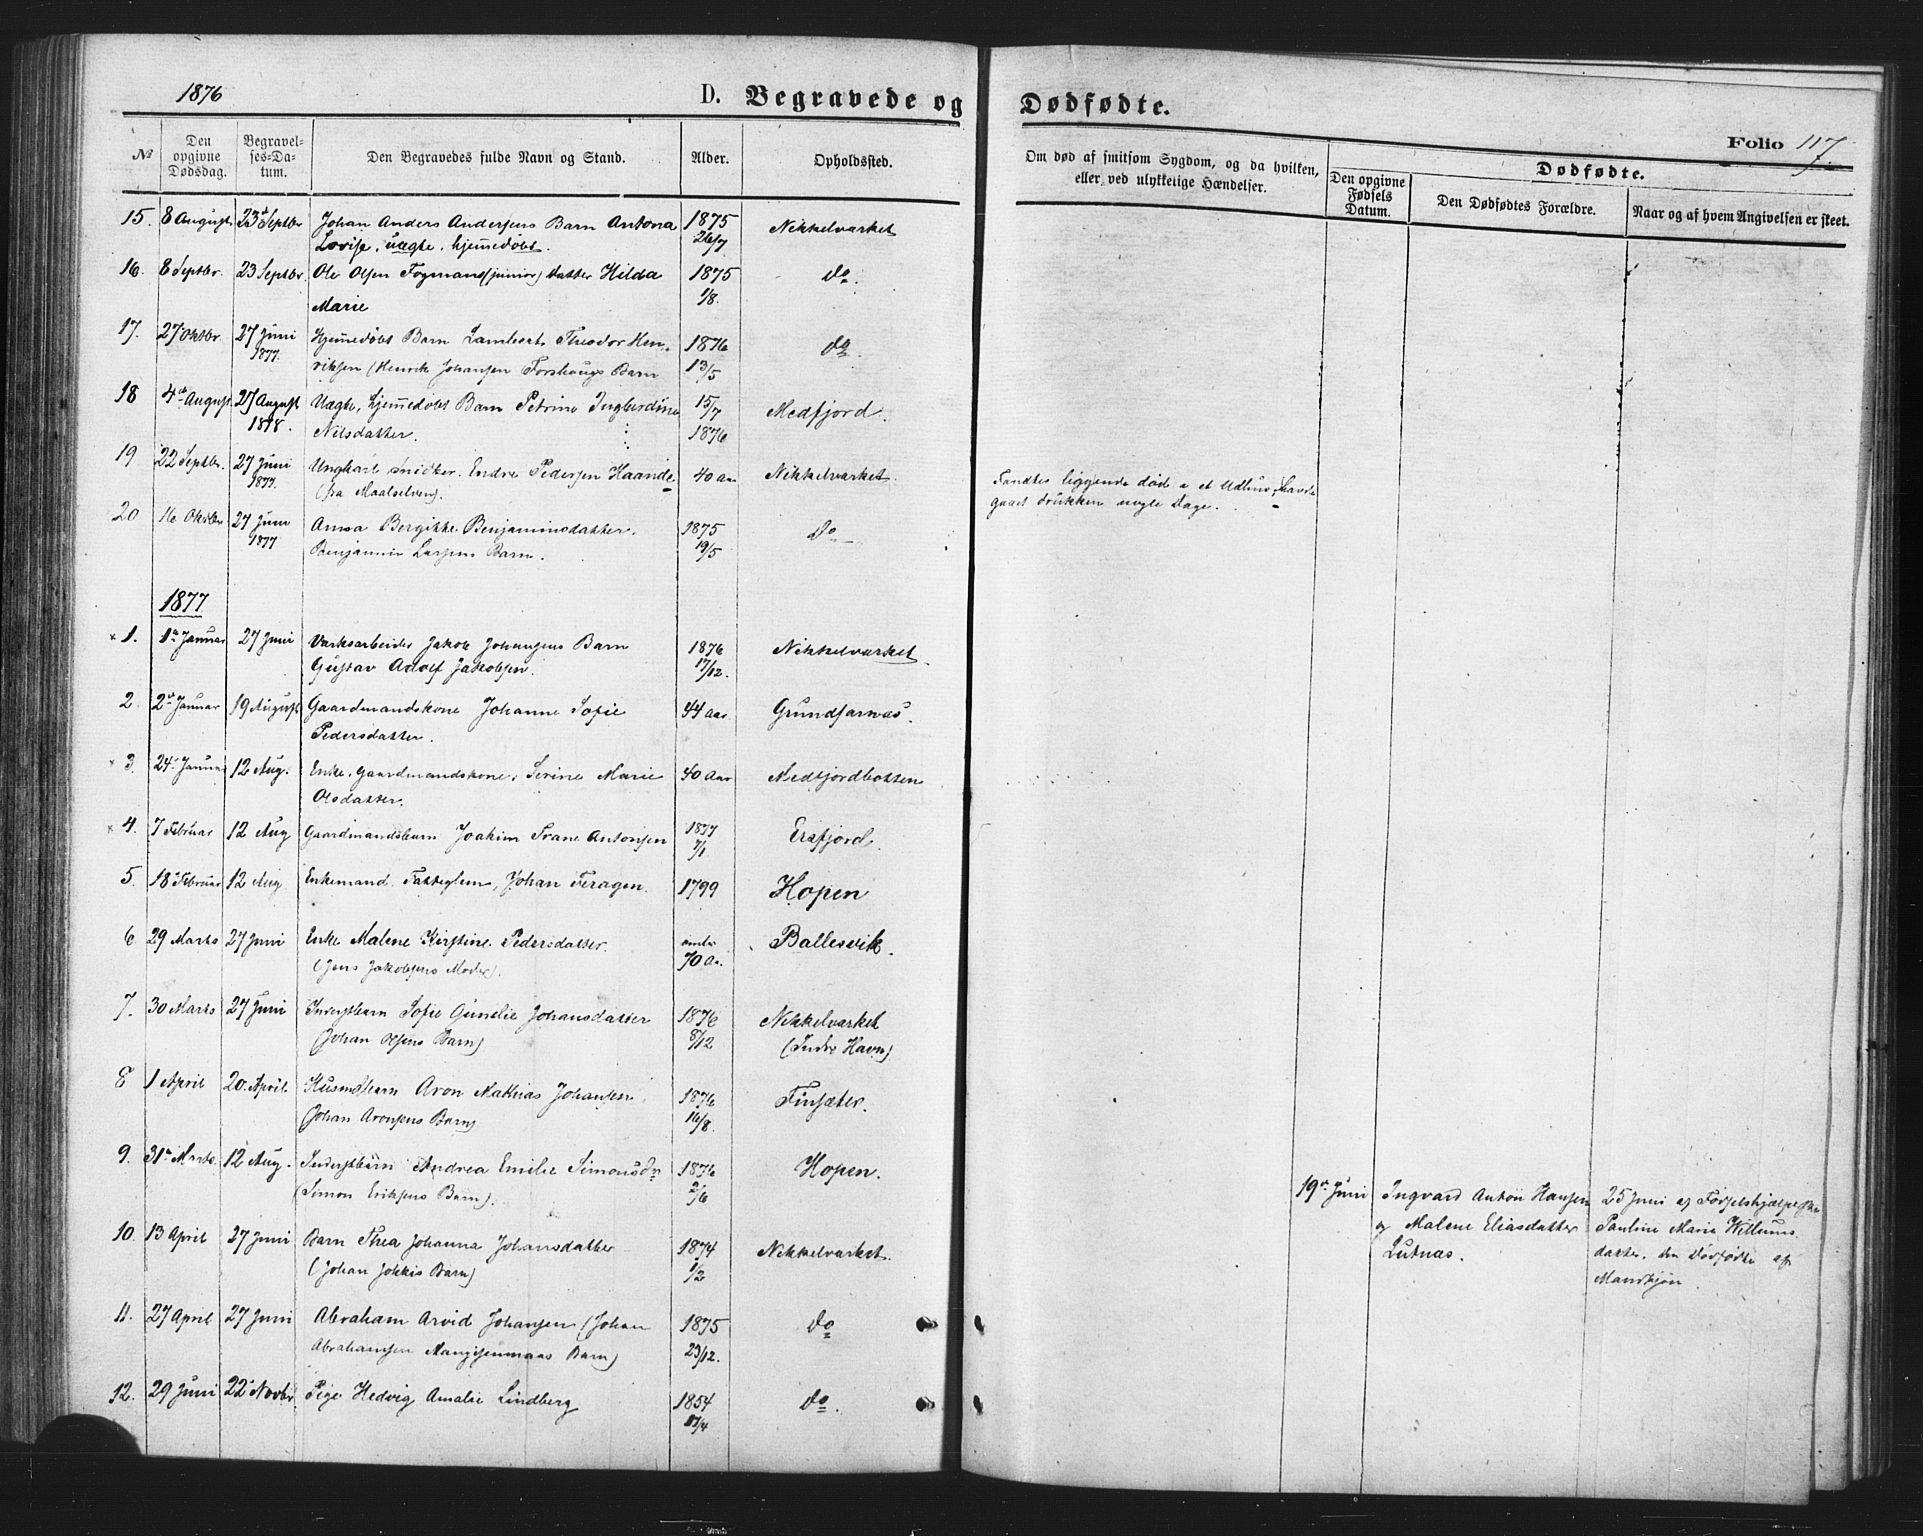 1876
D. Begravede og
№
Den opgivne Dødsdag.
Begravelses-Datum.
Den Begravedes fulde Navn og Stand.
Alder.
Opholdssted.
15. 8 August 23de Septbr Johan Anders Andersens Barn Antona 1875 Nikkelværket
Lovise, uægte, hjemmedøbt. 26/7
16. 8 Septbr. 23 Septbr. Ole Olsen Fogmans (junior) Datter Hilda 1875 do.
Marie 1/8.
17. 27 Oktbr. 27 Juni Hjemmedøbt Barn Lambert Theodor Hen- 1876 do.
1877. riksen (Henrik Johansen Forshaugs Barn 13/5
18 4de August 27 August Uægte, hjemmedøbt Barn Petrine Ingberdine 15/7 Medfjord.
1878. Nilsdatter. 1876
19 22 Septbr. 27 Juni Ungkarl Snidker Endre Pedersen Haande 40 Aar Nikkelværket.
1877. (fra Maalselven).
20 16 Oktbr 27 Juni Anna Bergitte Benjaminsdatter. 1875 Do
1877 Benjamin Larsens Barn. 19/5
1877
× 1. 1te Januar 27 Juni Værksarbeider Jakob Johansens Barn 1876 Nikkelværket.
Gustav Adolf Jakobsen. 17/12.
2. 2den Januar 19 August Gaardmandskone Johanne Sofie 44 Aar Grundfarnæs.
Pedersdatter.
× 3. 24 Januar 12 Aug. Enke, Gaardmandskone, Serine Marie 40 Aar Medfjordbotten
Olsdatter.
× 4. 7 Februar 12 Aug Gaardmandsbarn Joakim Trane Antonsen 1877 Ersfjord.
7/1
5. 18 Februar 12 Aug Enkemand. Fattiglem, Johan Feragen. 1799 Hopen
6 29 Marts 27 Juni Enke Malene Kirstine Pedersdatter. omtr Ballesvik.
(Jens Jakobsens Moder). 70 Aa.
7. 30 Marts 27 Juni Inderstbarn Sofie Gunelie Johansdatter 1876 Nikkelværket
(Johan Olsens Barn) 8/12 (Indre Havn)
8 1 April 20 April Husmdsbarn Aron Mathias Johansen. 1876 Finsæter.
(Johan Aronsens Barn) 16/8.
9. 31te Marts. 12 Aug. Inderstbarn Andrea Emilie Simonsdr 1876 Hopen.
(Simon Eriksens Barn). 2/6
10. 13 April 27 Juni Barn Thea Johanna Johansdatter 1874 Nikkelværket.
(Johan Jokkis Barn) 1/2
11. 27 April 27 Juni Abraham Arvid Johansen (Johan 1875 do
Abrahamsen Barn) 23/12.
12. 29 Juni 22 Novbr Pige Hedvig Amalie Lindberg 1854 do.
17/4
Dødfødte.
Folio 117.
Om død af smitsom Sygdom, og da hvilken,
eller ved ulykkelige Hændelser.
Dødfødte.
Den opgivne Fødsels Datum.
Den Dødfødtes Forældre.
Naar og af hvem Angivelsen er skeet.
Fandtes liggende død i et Udhus, havde
gaaet drukken nogle Dage.
19de Juni Ingvard Anton Hansen 25 Juni af
og Malene Eliasdatter Pauline Marie Willums
Lutnæs. datter. den Dødfødte af
Mandkjøn.